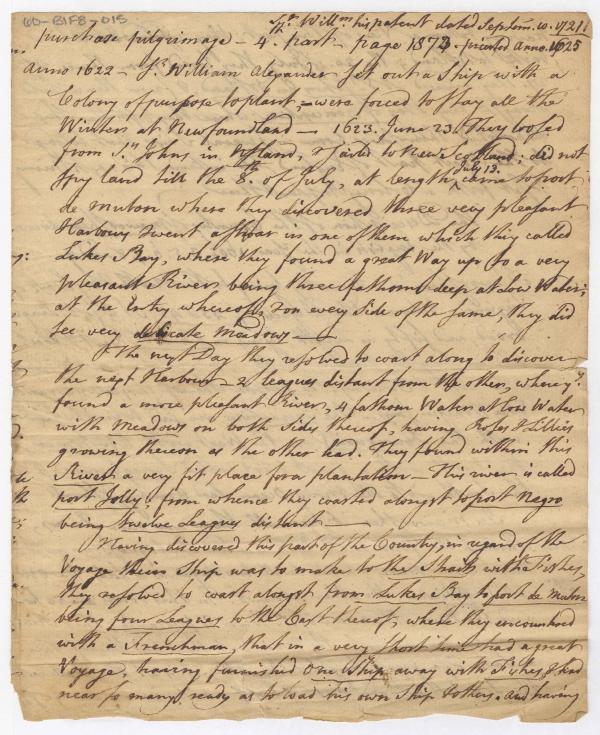 60-B1F8-015
Sr. Willm. his patent dated Septem. 10. 1621
purchase pilgrimage - 4. part - page 1873 - printed Anno. 1625
Anno 1622 - Sr. William Alexander set out a Ship with a
Colony of purpose to plant, - were forced to stay all the
Winter at Newfoundland - 1623. June 23. They loosed
from St. Johns in Nfland, & sail'd to New Scotland; did not
spy land till the 8th. of July, at length July 13. came to port
de muton where they discovered three very pleasant
Harbours & went ashoar in one of them which they called
Lukes Bay, where they found a great Way up to a very
pleasant River, being three fathom deep at low Water;
at the Entry whereof, & on every side of the same, they did
see very delicate meadows -
The next Day they resolved to coast along to discover
the next Harbour - 2 leagues distant from the other, where yy
found a more pleasant River, 4 fathom Water at low Water
with Meadows on both Sides thereof, having Roses & Lillies
growing thereon as the other had. They found within this
River a very fit place for a plantation - This river is called
port Jolly, from whence they coasted alongst to port Negro
being twelve Leagues distant -
Having discovered this part of the Country, in regard of the
Voyage their Ship was to make to the Straits with Fishes,
they resolved to coast alongst from Lukes Bay to port de muton
being four Leagues to the East thereof, where they encountred
with a Frenchman, that in a very short time had a great
Voyage, having furnished one Ship away with Fishes & had
near so many ready as to load his own Ship & others. And having